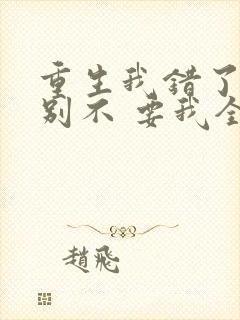 重生我错了
别不 要我全
趙飛